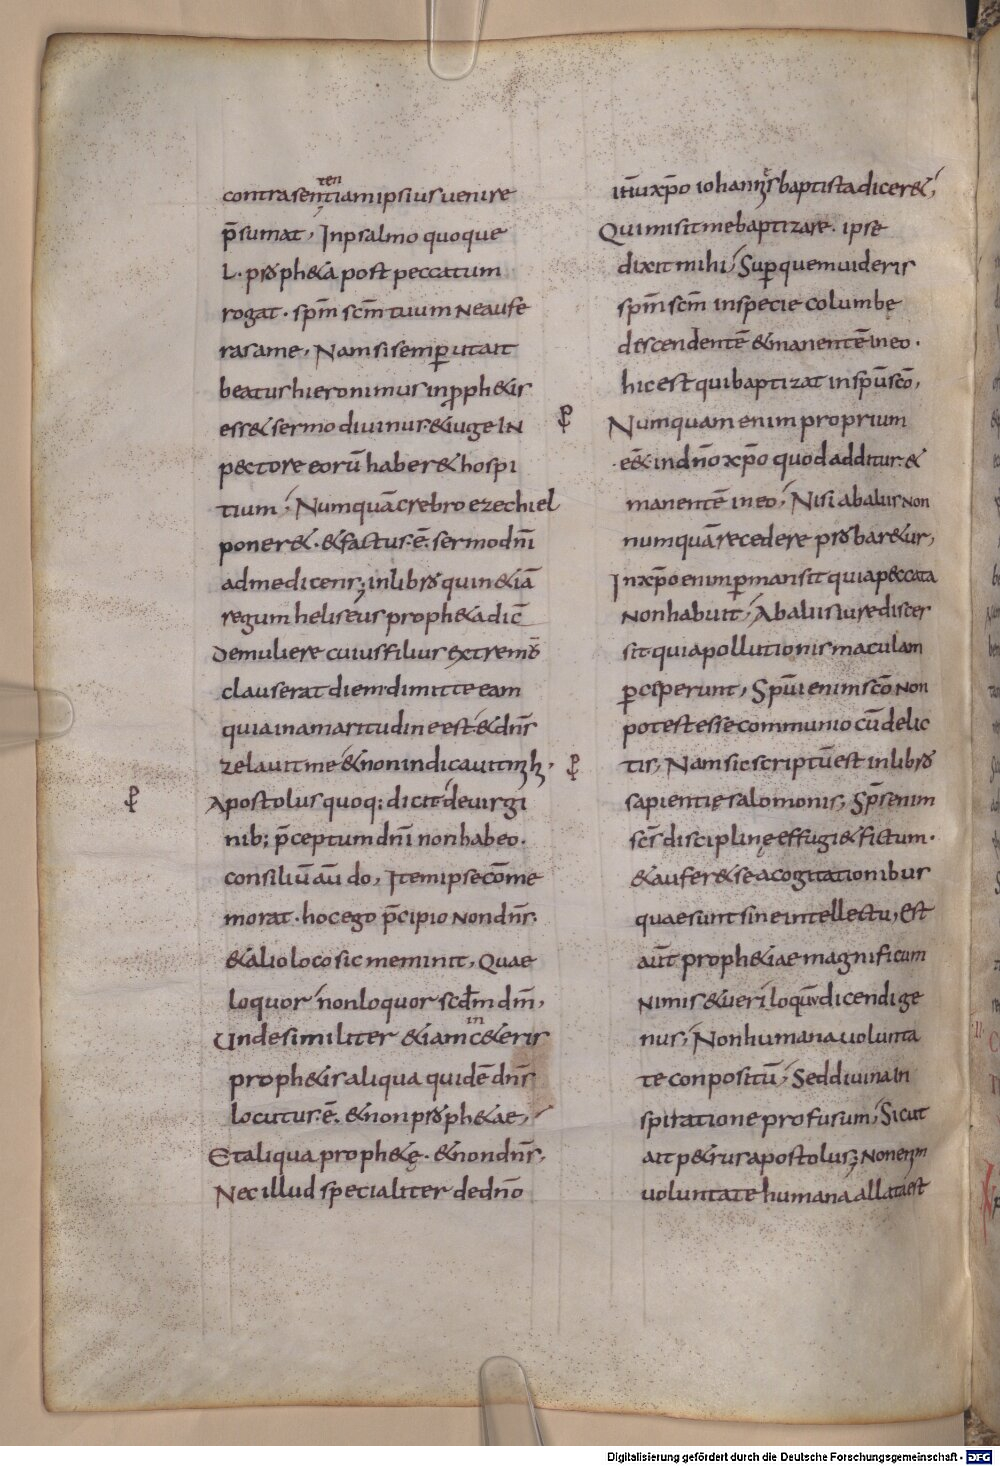 contrasententiam ipsius uenire
p̄sumat, Inpsalmo quoque
L. pro pheta post peccatum
rogat. spm̄ scm̄ tuum Neaufe
ras ame, Nam si semper ut ait
beatus hieronimus inprophetis
esset sermo diuinus. & iuge IN
pectore eorū haberet hospi
tium, Numquā crebro ezechiel
poneret. & factus. ē. sermo dn̄i
ad me dicens, inlibro quin etiā
regum heliseus propheta dic̄
Demuliere cuius filius extremū
clauserat diem. dimitte eam
quia inamaritudine est & dn̄s
zelauit me & non indicauit m
Apostolus quoq; dicit deuirgi
nib; p̄ceptum dn̄i non habeo.
consiliū aū do, Item ipse cōme
morat. hoc ego p̄cipio Non dn̄s.
& alio loco sic meminit, Quae
loquor non loquor scdm̄ dm̄,
Unde similiter etiam in ceteris
prophetis aliqua quidē dn̄s
locutus. ē. & non prophetae,
Et aliqua prophetę. & non dn̄s,
Nec illud specialiter de dn̄o
ihū xp̄o iohannis baptista diceret,
Qui misit me baptizare. ipse
dixit mihi, Super quem uideris
spm̄ scm̄ inspecie columbę
descendentē & manentē in eo.
hic est qui baptizat in spū scō,
Numquam enim proprium
eēt in dn̄o xp̄o quod additur. &
manentē in eo, Nisi ab aliis Non
numquā recedere probaretur,
In xp̄o enim permansit quia peccata
Non habuit, Ab aliis iure disces
sit quia pollutionis maculam
perceperunt, Spū enim scō Non
potest esse communio cū delic
tis, Nam sic scriptū est in libro
sapientię salomonis, Sp̄s enim
scs̄ disciplinę effugiet fictum.
& auferet se a cogitationibus
quae sunt sine intellectu, Est
aūt prophetiae magnificum
Nimis & ueri loquū dicendi ge
nus, Non humana uolunta
te conpositū, Sed diuina IN
spiratione profusum, Sicut
ait petrus apostolus, Non enim
uoluntate humana allata est
Digitalisierung gefördert durch die Deutsche Forschungsgemeinschaft - DFG